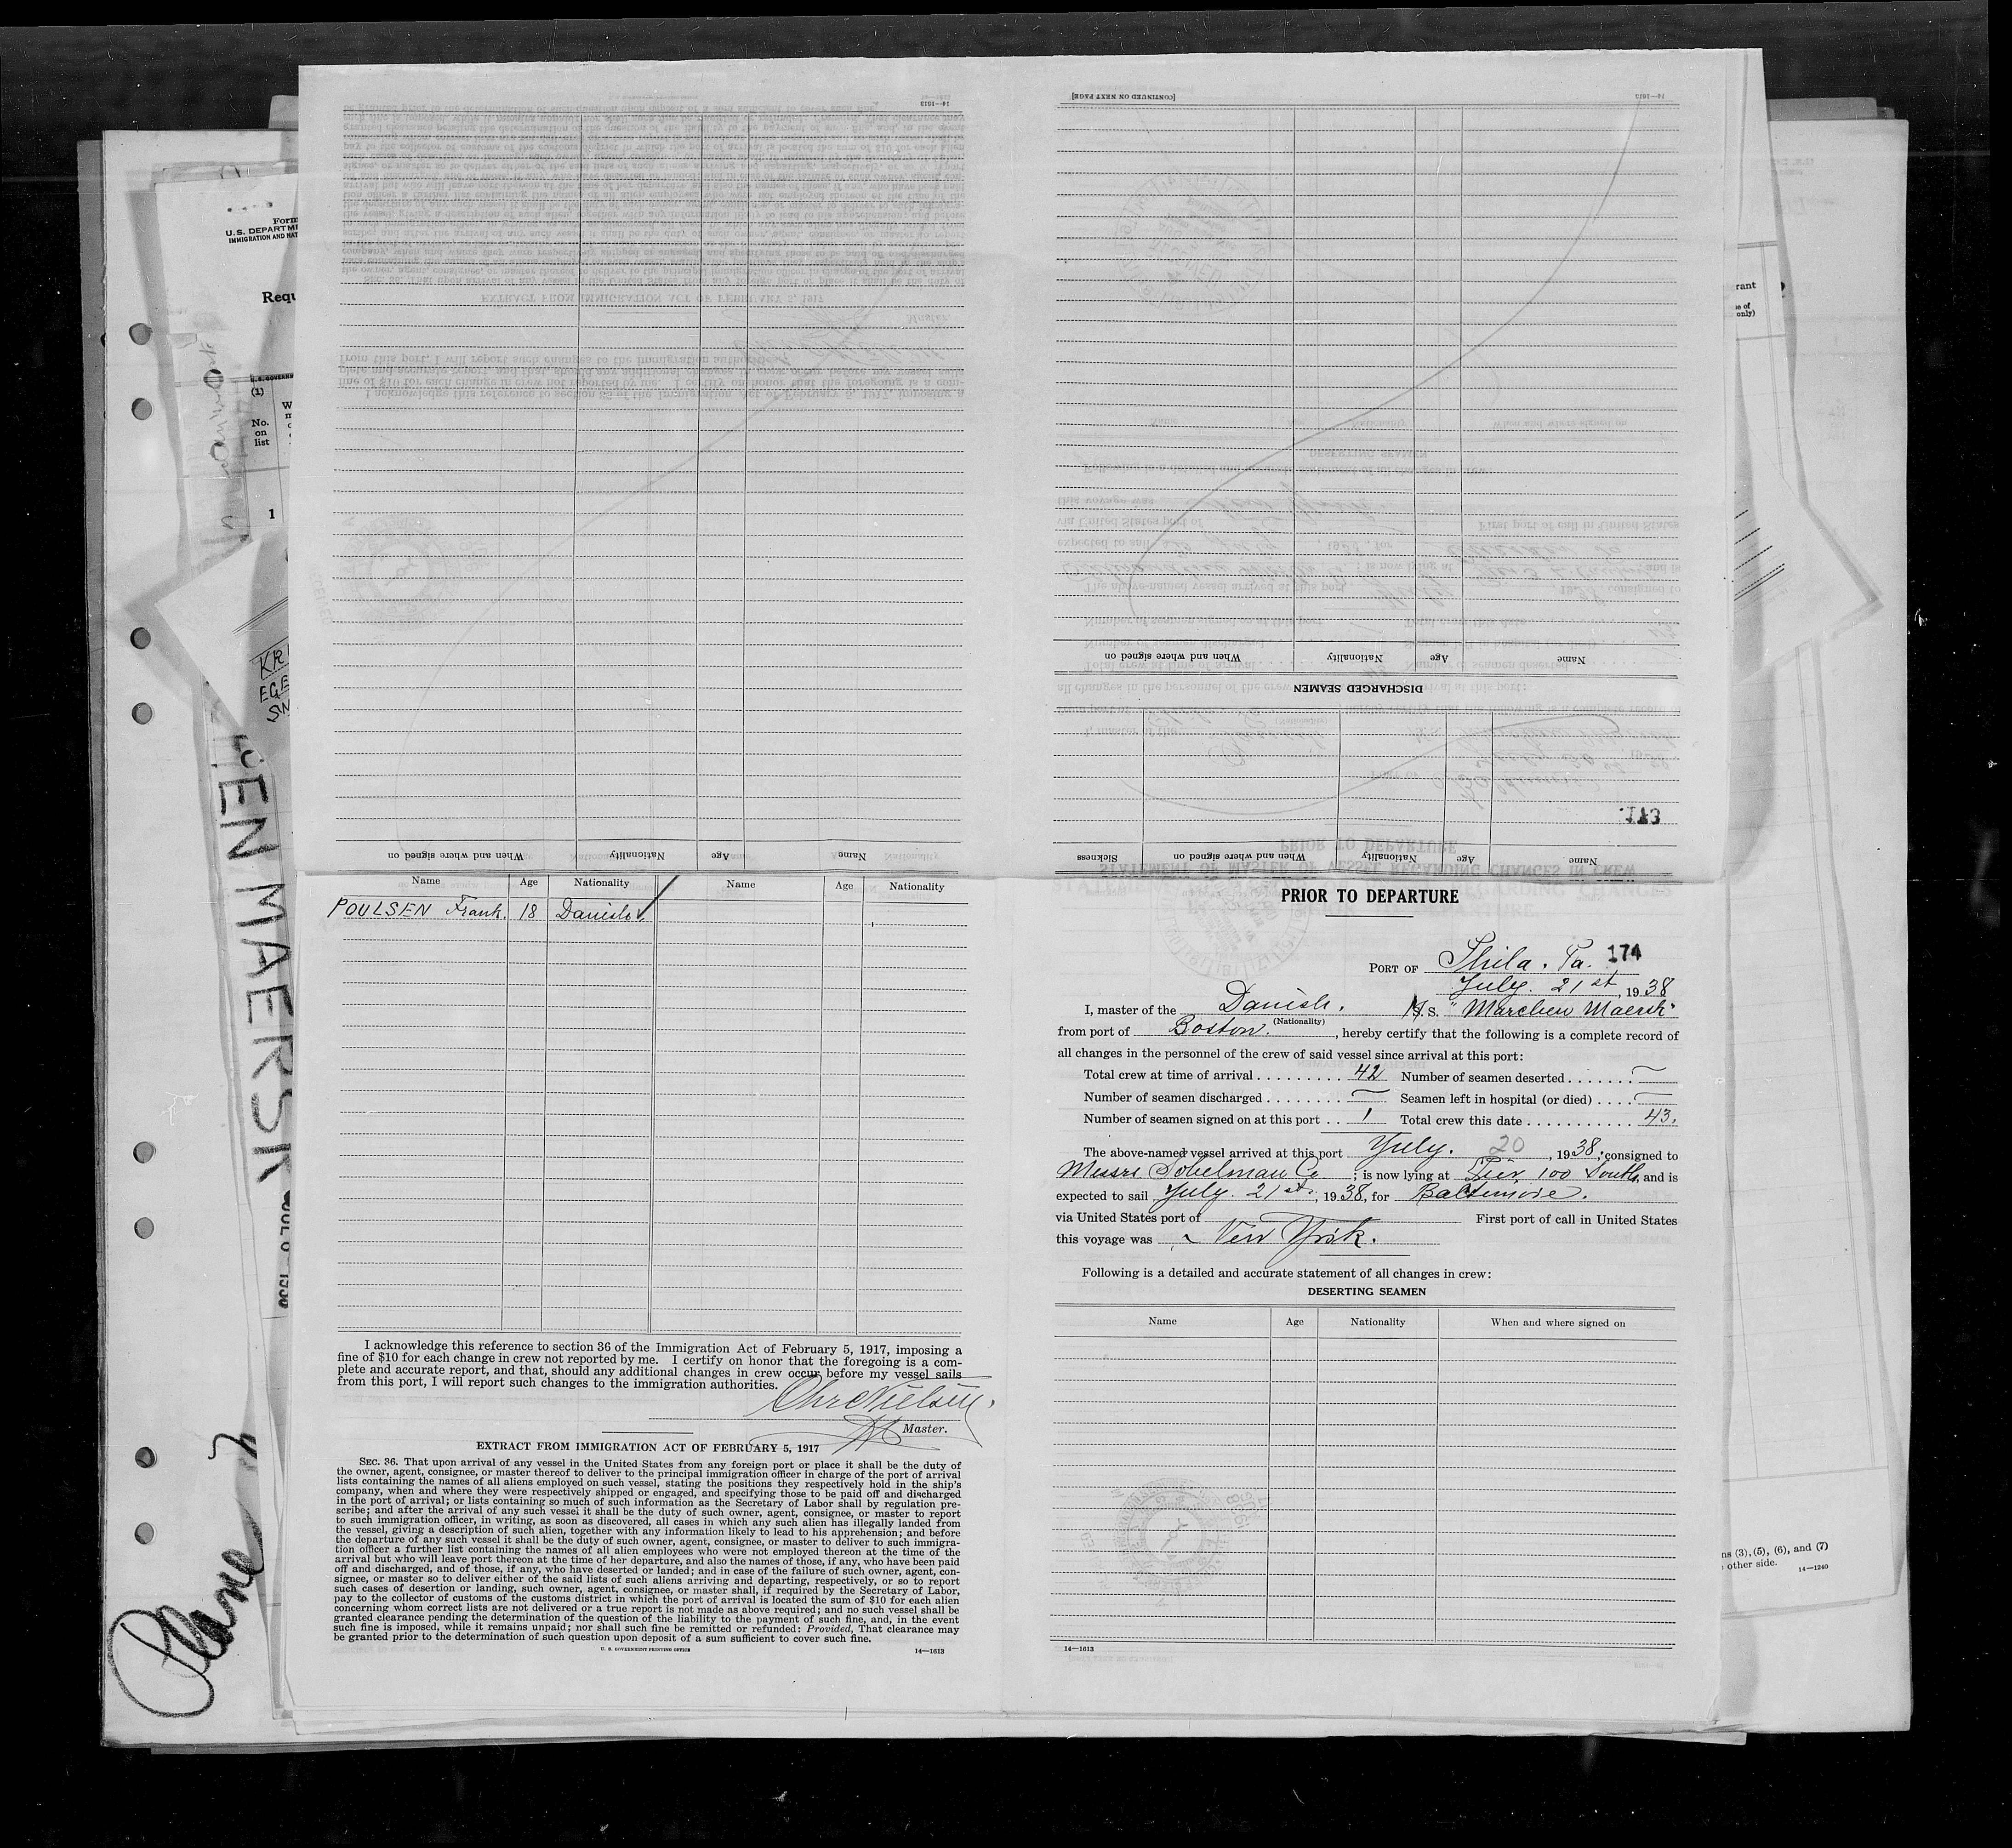 [CONTINUED ON NEXT PAGE]
14—1613
14—1613
Name
Age
Nationality
When and where signed on
DISCHARGED SEAMEN
Name
Age
Nationality
When and where signed on
Sickness
173
Name
Age
Nationality
When and where signed on
Form
U.S. DEPARTME
IMMIGRATION AND NAT
Requ
(1)
No.
on
list
1
KR
EGE
SN
EN MAERSK
Name Age Nationality Name Age Nationality
POULSEN Frank. 18 Danish
I acknowledge this reference to section 36 of the Immigration Act of February 5, 1917, imposing a
fine of $10 for each change in crew not reported by me. I certify on honor that the foregoing is a com-
plete and accurate report, and that, should any additional changes in crew occur before my vessel sails
from this port, I will report such changes to the immigration authorities.
Chr Nielsen.
Master.
EXTRACT FROM IMMIGRATION ACT OF FEBRUARY 5, 1917
SEC. 36. That upon arrival of any vessel in the United States from any foreign port or place it shall be the duty of
the owner, agent, consignee, or master thereof to deliver to the principal immigration officer in charge of the port of arrival
lists containing the names of all aliens employed on such vessel, stating the positions they respectively hold in the ship's
company, when and where they were respectively shipped or engaged, and specifying those to be paid off and discharged
in the port of arrival; or lists containing so much of such information as the Secretary of Labor shall by regulation pre-
scribe; and after the arrival of any such vessel it shall be the duty of such owner, agent, consignee, or master to report
to such immigration officer, in writing, as soon as discovered, all cases in which any such alien has illegally landed from
the vessel, giving a description of such alien, together with any information likely to lead to his apprehension; and before
the departure of any such vessel it shall be the duty of such owner, agent, consignee, or master to deliver to such immigra-
tion officer a further list containing the names of all alien employees who were not employed thereon at the time of the
arrival but who will leave port thereon at the time of her departure, and also the names of those, if any, who have been paid
off and discharged, and of those, if any, who have deserted or landed; and in case of the failure of such owner, agent, con-
signee, or master so to deliver either of the said lists of such aliens arriving and departing, respectively, or so to report
such cases of desertion or landing, such owner, agent, consignee, or master shall, if required by the Secretary of Labor,
pay to the collector of customs of the customs district in which the port of arrival is located the sum of $10 for each alien
concerning whom correct lists are not delivered or a true report is not made as above required; and no such vessel shall be
granted clearance pending the determination of the question of the liability to the payment of such fine, and, in the event
such fine is imposed, while it remains unpaid; nor shall such fine be remitted or refunded: Provided, That clearance may
be granted prior to the determination of such question upon deposit of a sum sufficient to cover such fine.
U. S. GOVERNMENT PRINTING OFFICE
14—1613
PRIOR TO DEPARTURE
PORT OF Phila. Pa. 174
July. 21st, 1938
I, master of the Danish. M.S. "Marchen Maersk"
(Nationality)
from port of Boston., hereby certify that the following is a complete record of
all changes in the personnel of the crew of said vessel since arrival at this port:
Total crew at time of arrival 42 Number of seamen deserted —
Number of seamen discharged — Seamen left in hospital (or died) —
Number of seamen signed on at this port 1 Total crew this date 43.
The above-named vessel arrived at this port July. 20, 1938; consigned to
Messrs Sobelman Co; is now lying at Pier 100 South, and is
expected to sail July. 21st, 1938, for Baltimore.
via United States port of First port of call in United States
this voyage was New York.
Following is a detailed and accurate statement of all changes in crew:
DESERTING SEAMEN
Name Age Nationality When and where signed on
14—1613
rant
se of
only)
ns (3), (5), (6), and (7)
other side.
14—1240